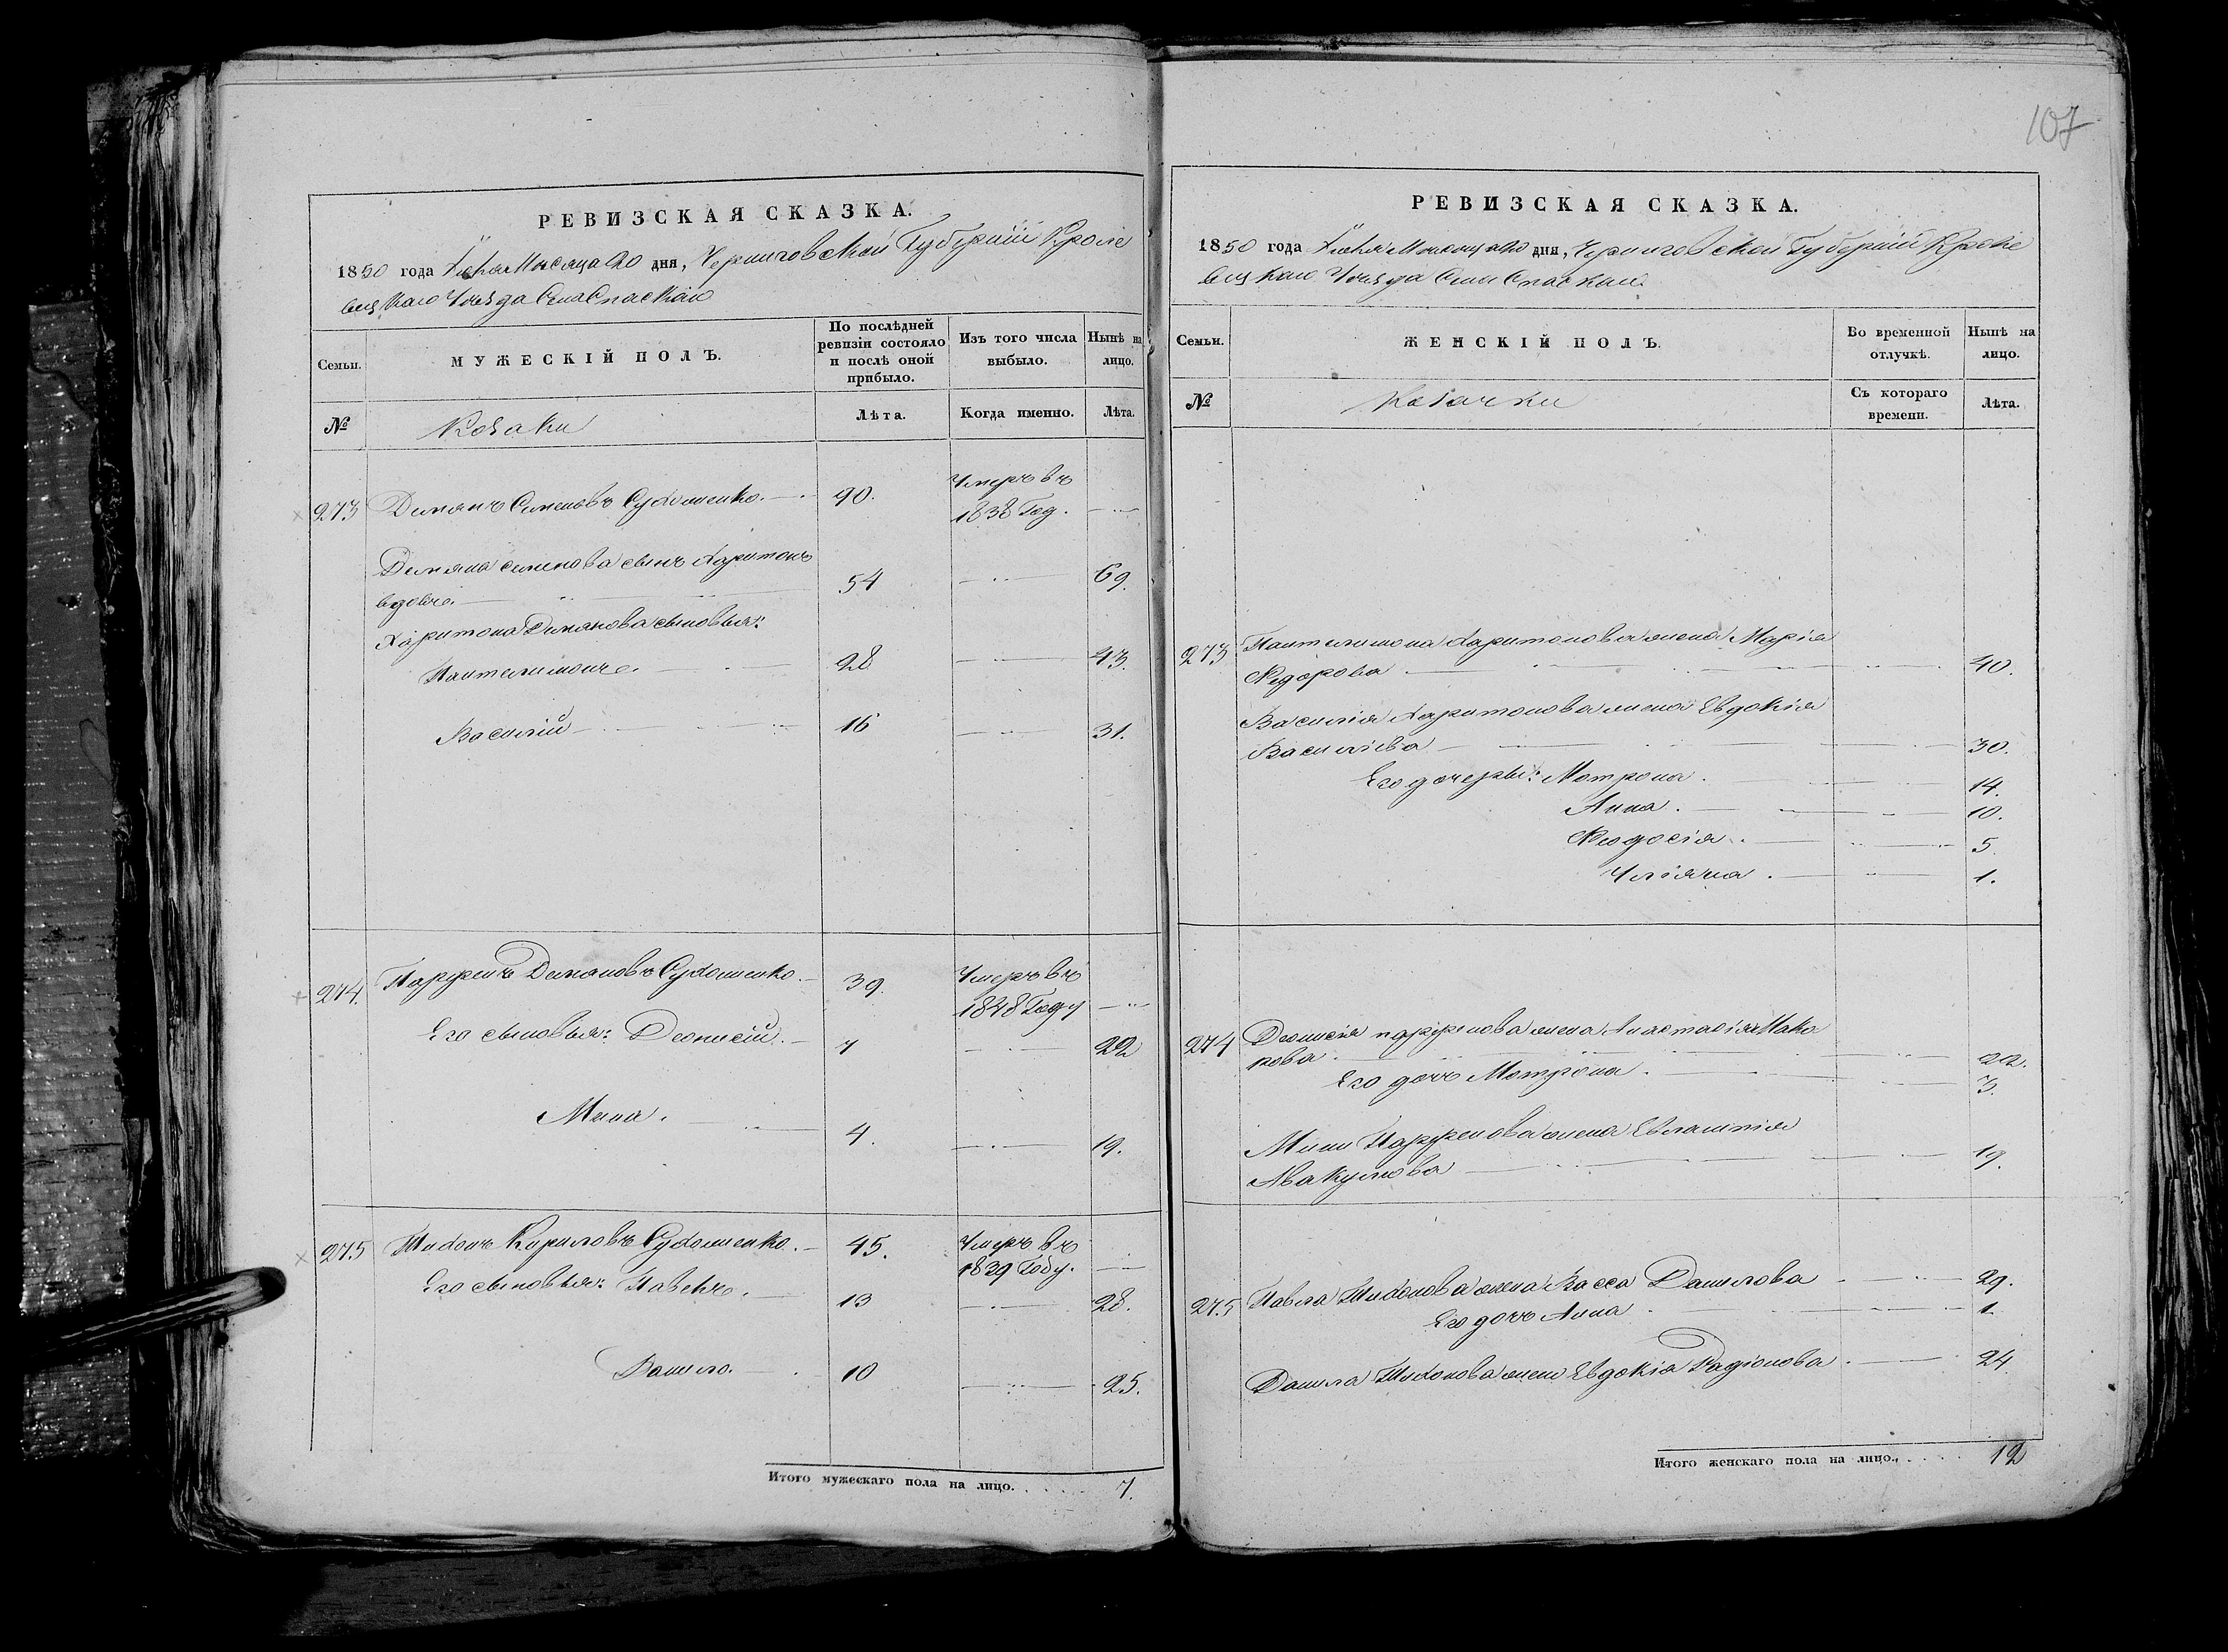 107
РЕВИЗСКАЯ СКАЗКА.
1850 года Мѣсяца 20 дня, Черниговской Губерніи Кроле
вецкаго Уѣзда Села Спаскаго
Семьи.
МУЖЕСКІЙ ПОЛЪ.
По послѣдней ревизіи состояло и послѣ оной прибыло.
Изъ того числа выбыло.
Нынѣ на лицо.
№
Козаки
Лѣта.
Когда именно.
Лѣта.
273 Демянъ Семеновъ Сухоменко. 90. Умеръ въ
1838 Год.
Демяна Семенова сынъ Харитонъ
вдовъ. 54 69.
Харитона Демянова сыновья:
Пантелимонъ. 28 43.
Василій 16 31.
274. Парфенъ Демяновъ Сухоменко. 39. Умеръ въ
1848 Году
Его сыновья: Деонисій. 7 22
Мина. 4. 19.
275 Тихонъ Кириловъ Сухоменко. 45. Умеръ въ
1839 Году.
Его сыновья: Павелъ. 13 28.
Данило. 10 25.
Итого мужескаго пола на лицо. . . . . 7.
РЕВИЗСКАЯ СКАЗКА.
1850 года Мѣсяца 20 дня, Черниговской Губерніи Кроле
вецкаго Уѣзда Села Спаскаго
Семьи.
ЖЕНСКІЙ ПОЛЪ.
Во временной отлучкѣ.
Нынѣ на лицо.
№
Козачки
Съ котораго времени.
Лѣта.
273 Пантелимона Харитонова жена Марія
Федорова 40.
Василія Харитонова жена Евдокія
Василіева 30.
Его дочери: Мотрона. 14.
Анна. 10.
Феодосія. 5.
Уліяна. 1.
274 Деонисія парфенова жена Анастасія Мака
рова 22.
Его дочь Мотрона. 3.
Мины Парфенова жена Евлампія
Авакумова 19.
275 Павла Тихонова жена Васса Данилова 29.
Его дочь Анна 1.
Данила Тихонова жена Евдокія Радіонова. 24
Итого женскаго пола на лицо. . . . . 12